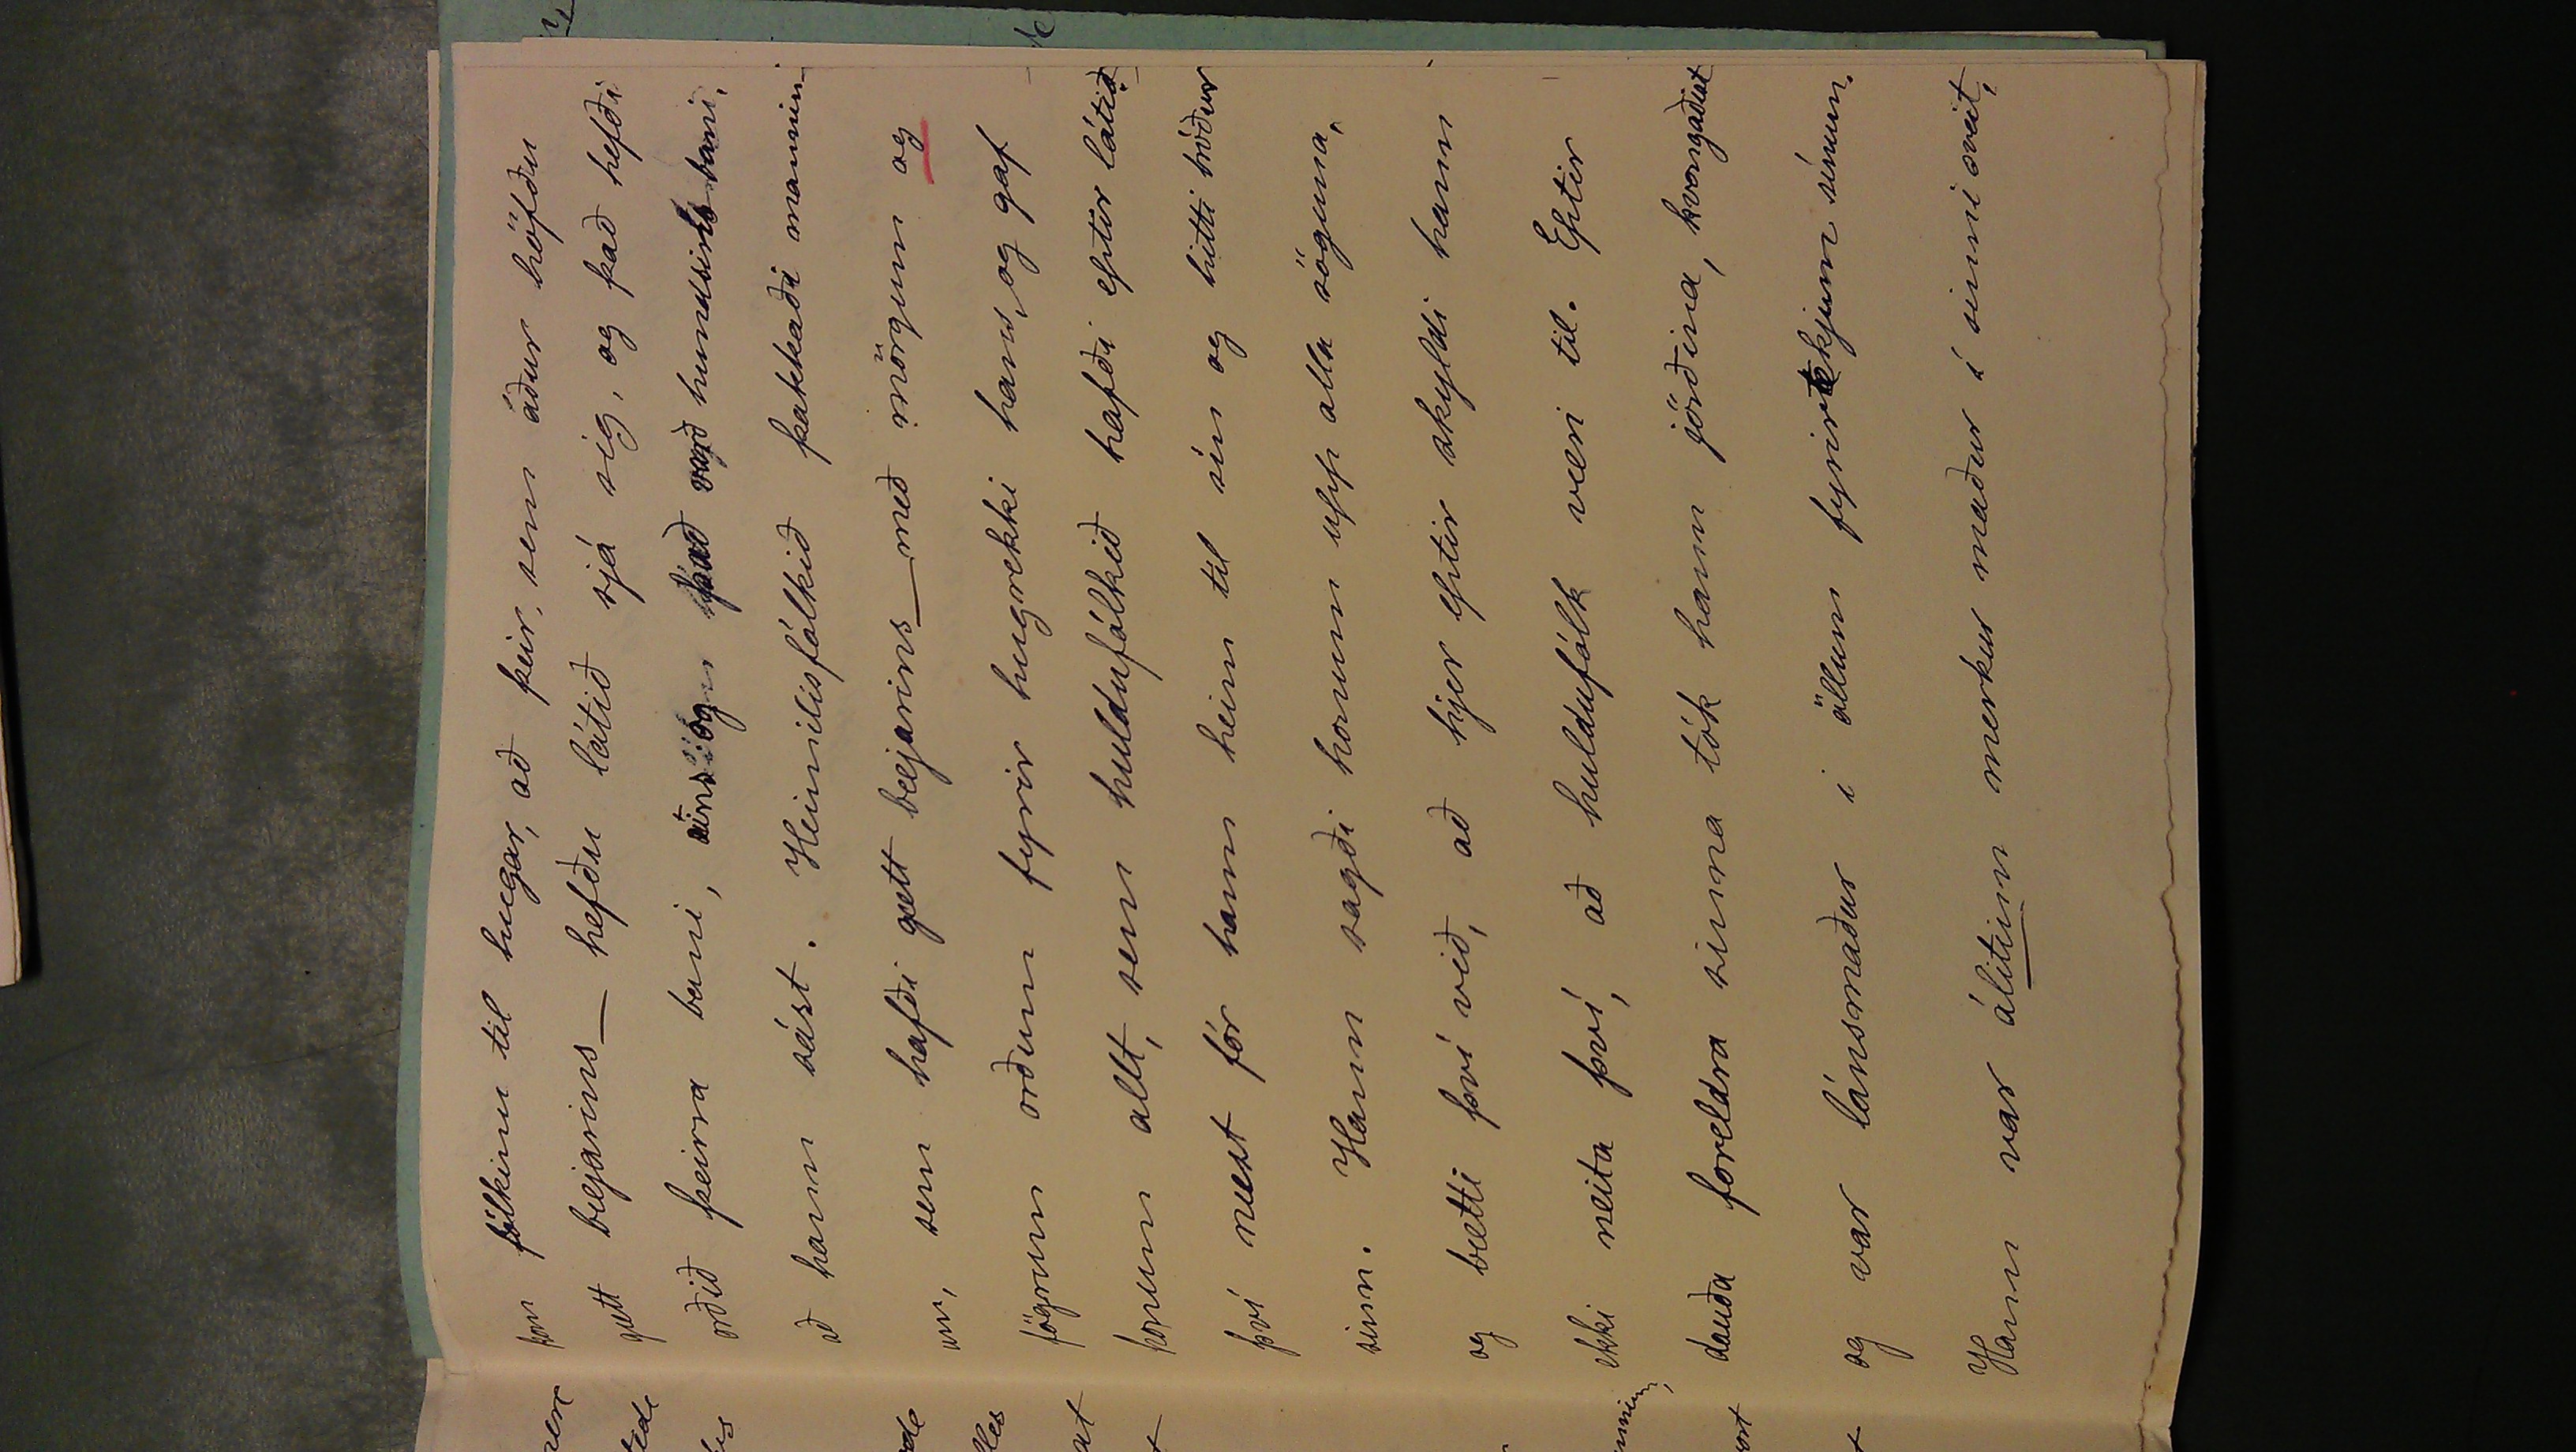 kom fólkinu til hugar, að þeir, sem áður höfðu
gætt bæjarins — hefðu látið sjá sig, og það hefði
orðið þeirra bani, eins og það varð hundsins bani,
að hann sást. Heimilisfólkið þakkaði mannin-
um, sem hafði gætt bæjarins — með mörgum og
fögrum orðum fyrir hugrekki hans, og gaf
honum allt, sem huldufólkið hafði eptir látið.
því næst fór hann heim til sín og hitti bróður
sinn. Hann sagði honum upp alla söguna,
og bætti því við, að hjer eptir skyldi hann
ekki neita því, að huldufólk væri til. Eptir
dauða foreldra sinna tók hann jörðina, kvongaðist
og var lánsmaður í öllum fyrirtækjum sínum.
Hann var álitinn merkur maður í sinni sveit,